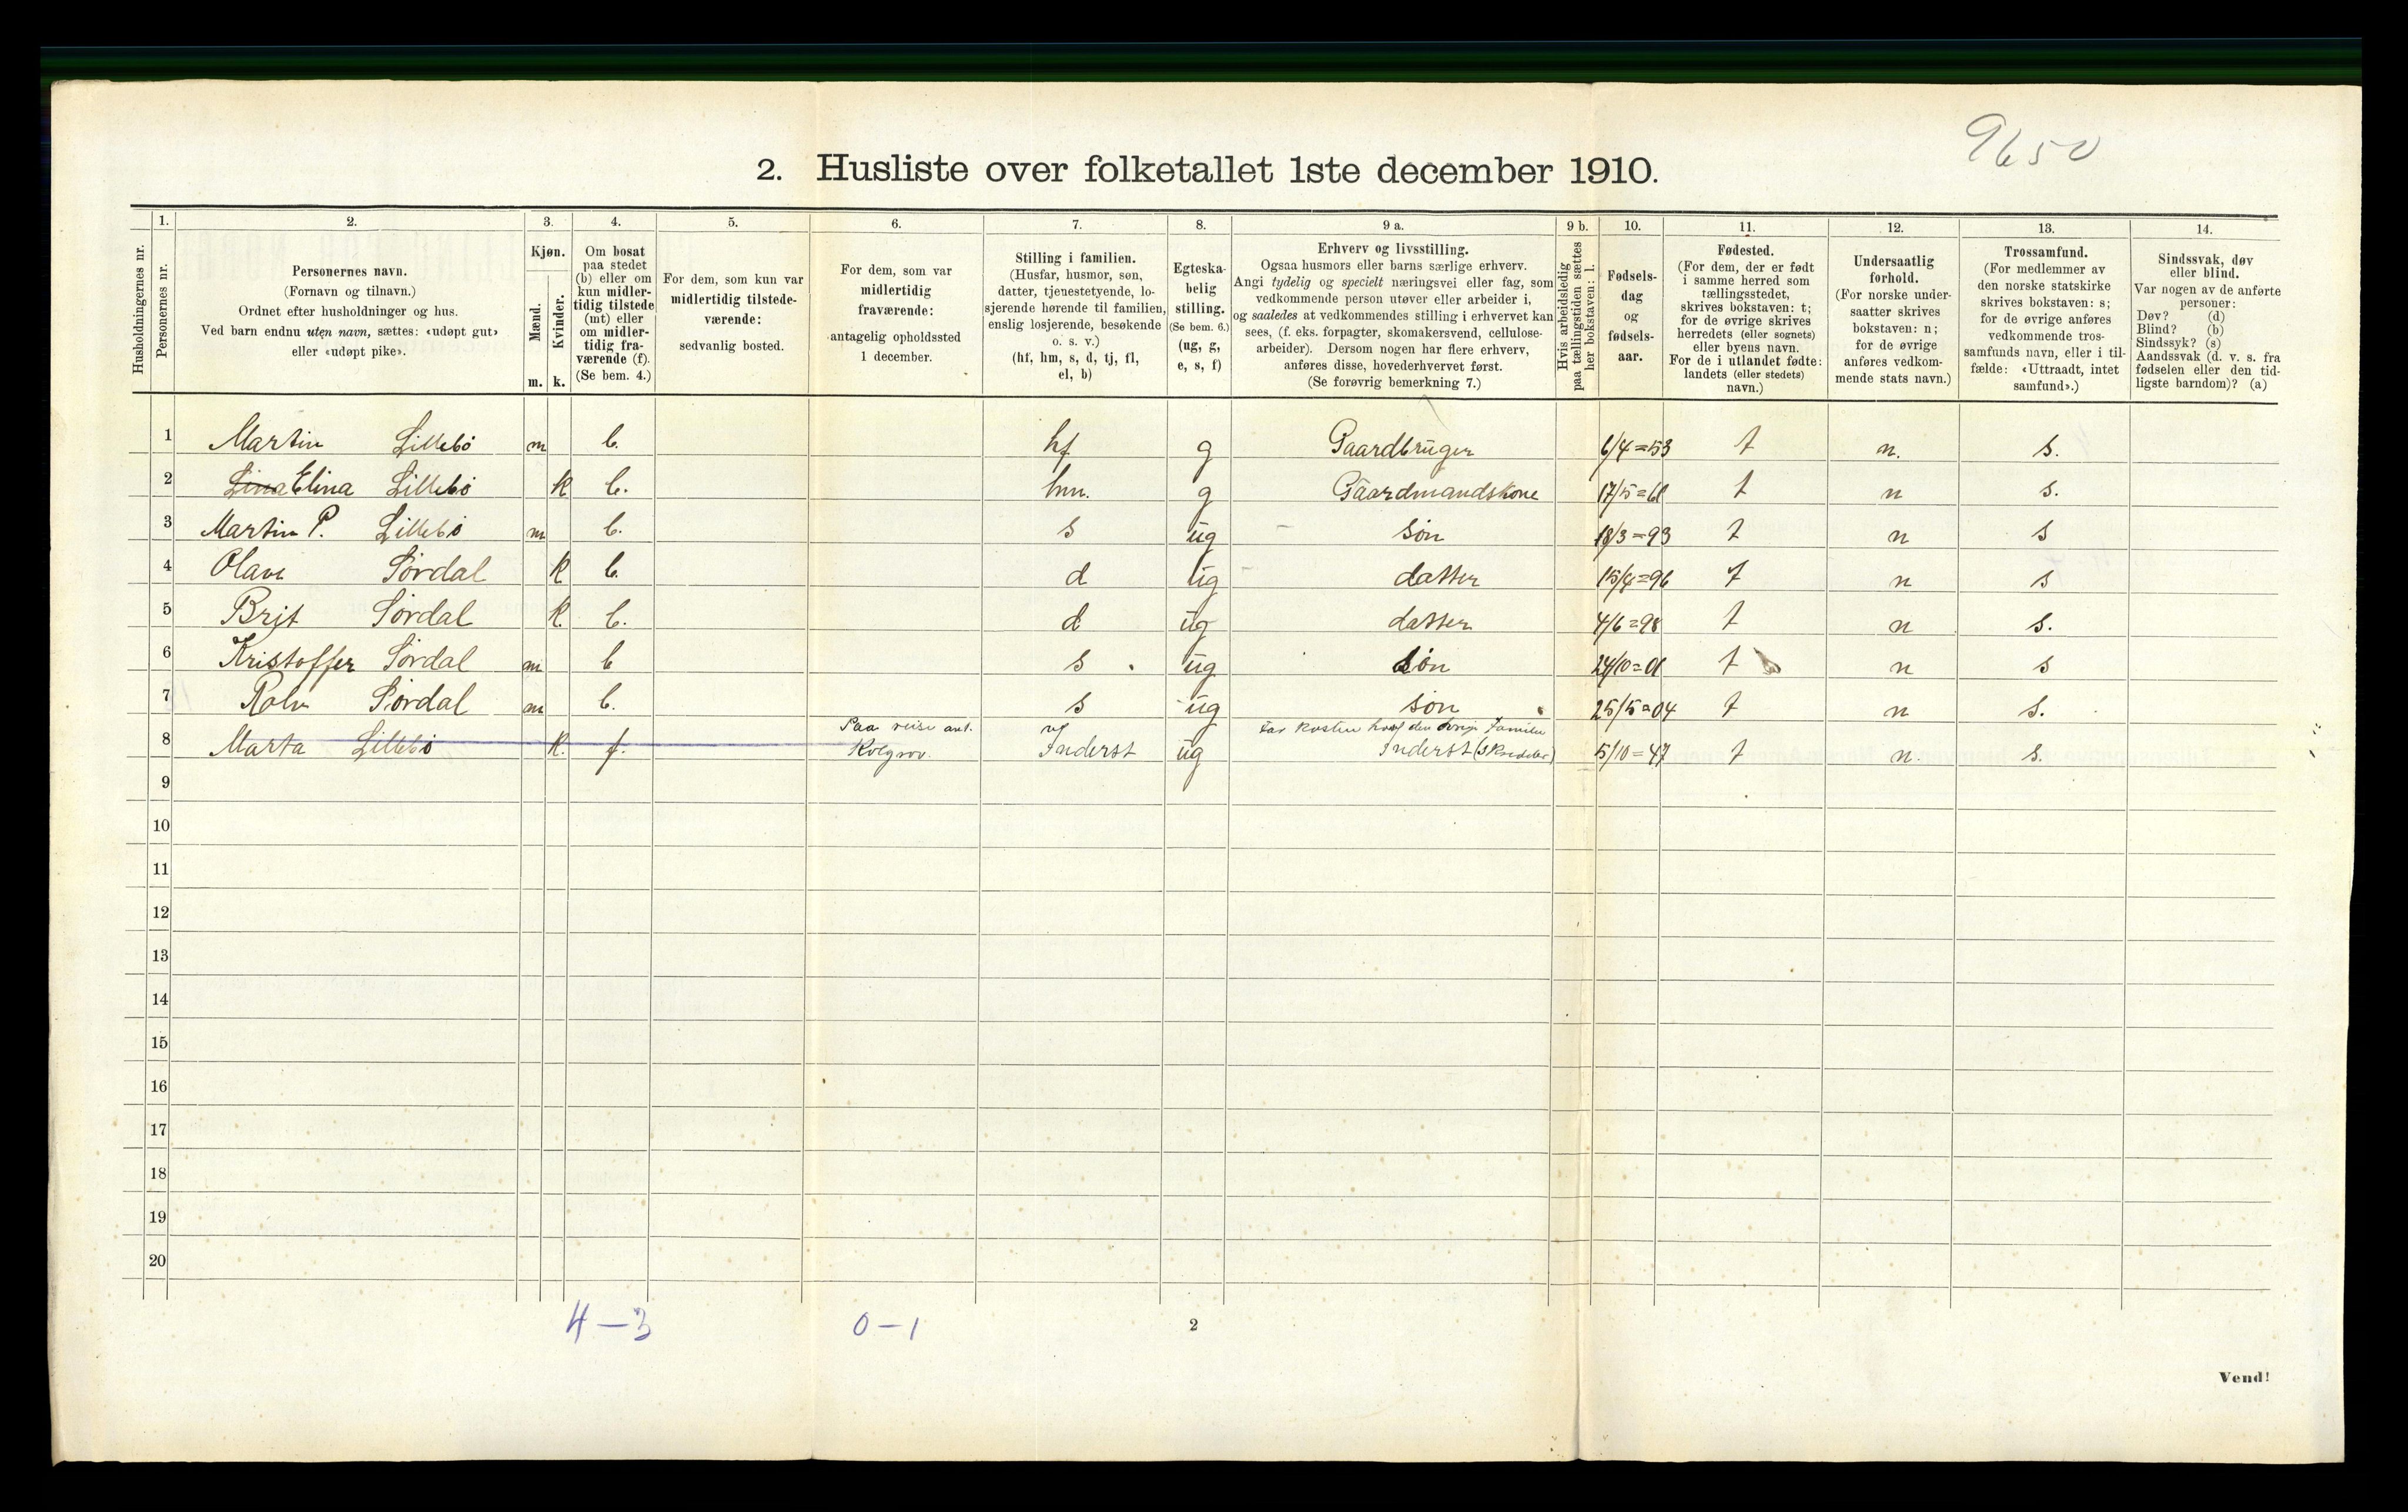 9650
2. Husliste over folketallet 1ste december 1910.
Husholdningernes nr.
1. Personernes nr.
2. Personernes navn.
(Fornavn og tilnavn.)
Ordnet efter husholdninger og hus.
Ved barn endnu uten navn, sættes: «udøpt gut»
eller «udøpt pike».
3. Kjøn.
Mænd. m.
Kvinder. k.
4. Om bosat
paa stedet
(b) eller om
kun midler-
tidig tilstede
(mt) eller
om midler-
tidig fra-
værende (f).
(Se bem. 4.)
5. For dem, som kun var
midlertidig tilstede-
værende:
sedvanlig bosted.
6. For dem, som var
midlertidig
fraværende:
antagelig opholdssted
1 december.
7. Stilling i familien.
(Husfar, husmor, søn,
datter, tjenestetyende, lo-
sjerende hørende til familien,
enslig losjerende, besøkende
o. s. v.)
(hf, hm, s, d, tj, fl,
el, b)
8. Egteska-
belig
stilling.
(Se bem. 6.)
(ug, g,
e, s, f)
9 a. Erhverv og livsstilling.
Ogsaa husmors eller barns særlige erhverv.
Angi tydelig og specielt næringsvei eller fag, som
vedkommende person utøver eller arbeider i,
og saaledes at vedkommendes stilling i erhvervet kan
sees, (f. eks. forpagter, skomakersvend, cellulose-
arbeider). Dersom nogen har flere erhverv,
anføres disse, hovederhvervet først.
(Se forøvrig bemerkning 7.)
9 b. Hvis arbeidsledig
paa tællingstiden sættes
her bokstaven: l.
10. Fødsels-
dag
og
fødsels-
aar.
11. Fødested.
(For dem, der er født
i samme herred som
tællingsstedet,
skrives bokstaven: t;
for de øvrige skrives
herredets (eller sognets)
eller byens navn.
For de i utlandet fødte:
landets (eller stedets)
navn.)
12. Undersaatlig
forhold.
(For norske under-
saatter skrives
bokstaven: n;
for de øvrige
anføres vedkom-
mende stats navn.)
13. Trossamfund.
(For medlemmer av
den norske statskirke
skrives bokstaven: s;
for de øvrige anføres
vedkommende tros-
samfunds navn, eller i til-
fælde: «Uttraadt, intet
samfund».)
14. Sindssvak, døv
eller blind.
Var nogen av de anførte
personer:
Døv? (d)
Blind? (b)
Sindssyk? (s)
Aandssvak (d. v. s. fra
fødselen eller den tid-
ligste barndom)? (a)
1 Martin Lillebö m b. hf g Gaardbruger 6/4=53 t n. s.
2 Lina Elina Lillebö k b. hm. g Gaardmandskone 17/5=61 t n s.
3 Martin P. Lillebö m b. s ug sön 18/3=93 t n s
4 Sördal k b. d ug datter 15/4=96 t n s
5 Brit Sördal k. b. d ug datter 4/6=98 t n s.
6 Kristoffer Sördal m b s ug sön 24/10=01 t n s
7 Sördal m b. s ug sön 25/5=04 t n s.
Paa reise ant. den familie
8 Marta Lillebö k. f. Inderst ug Inderst 5/10=47 t n. s.
9
10
11
12
13
14
15
16
17
18
19
20
4–3 0–1
2
Vend!